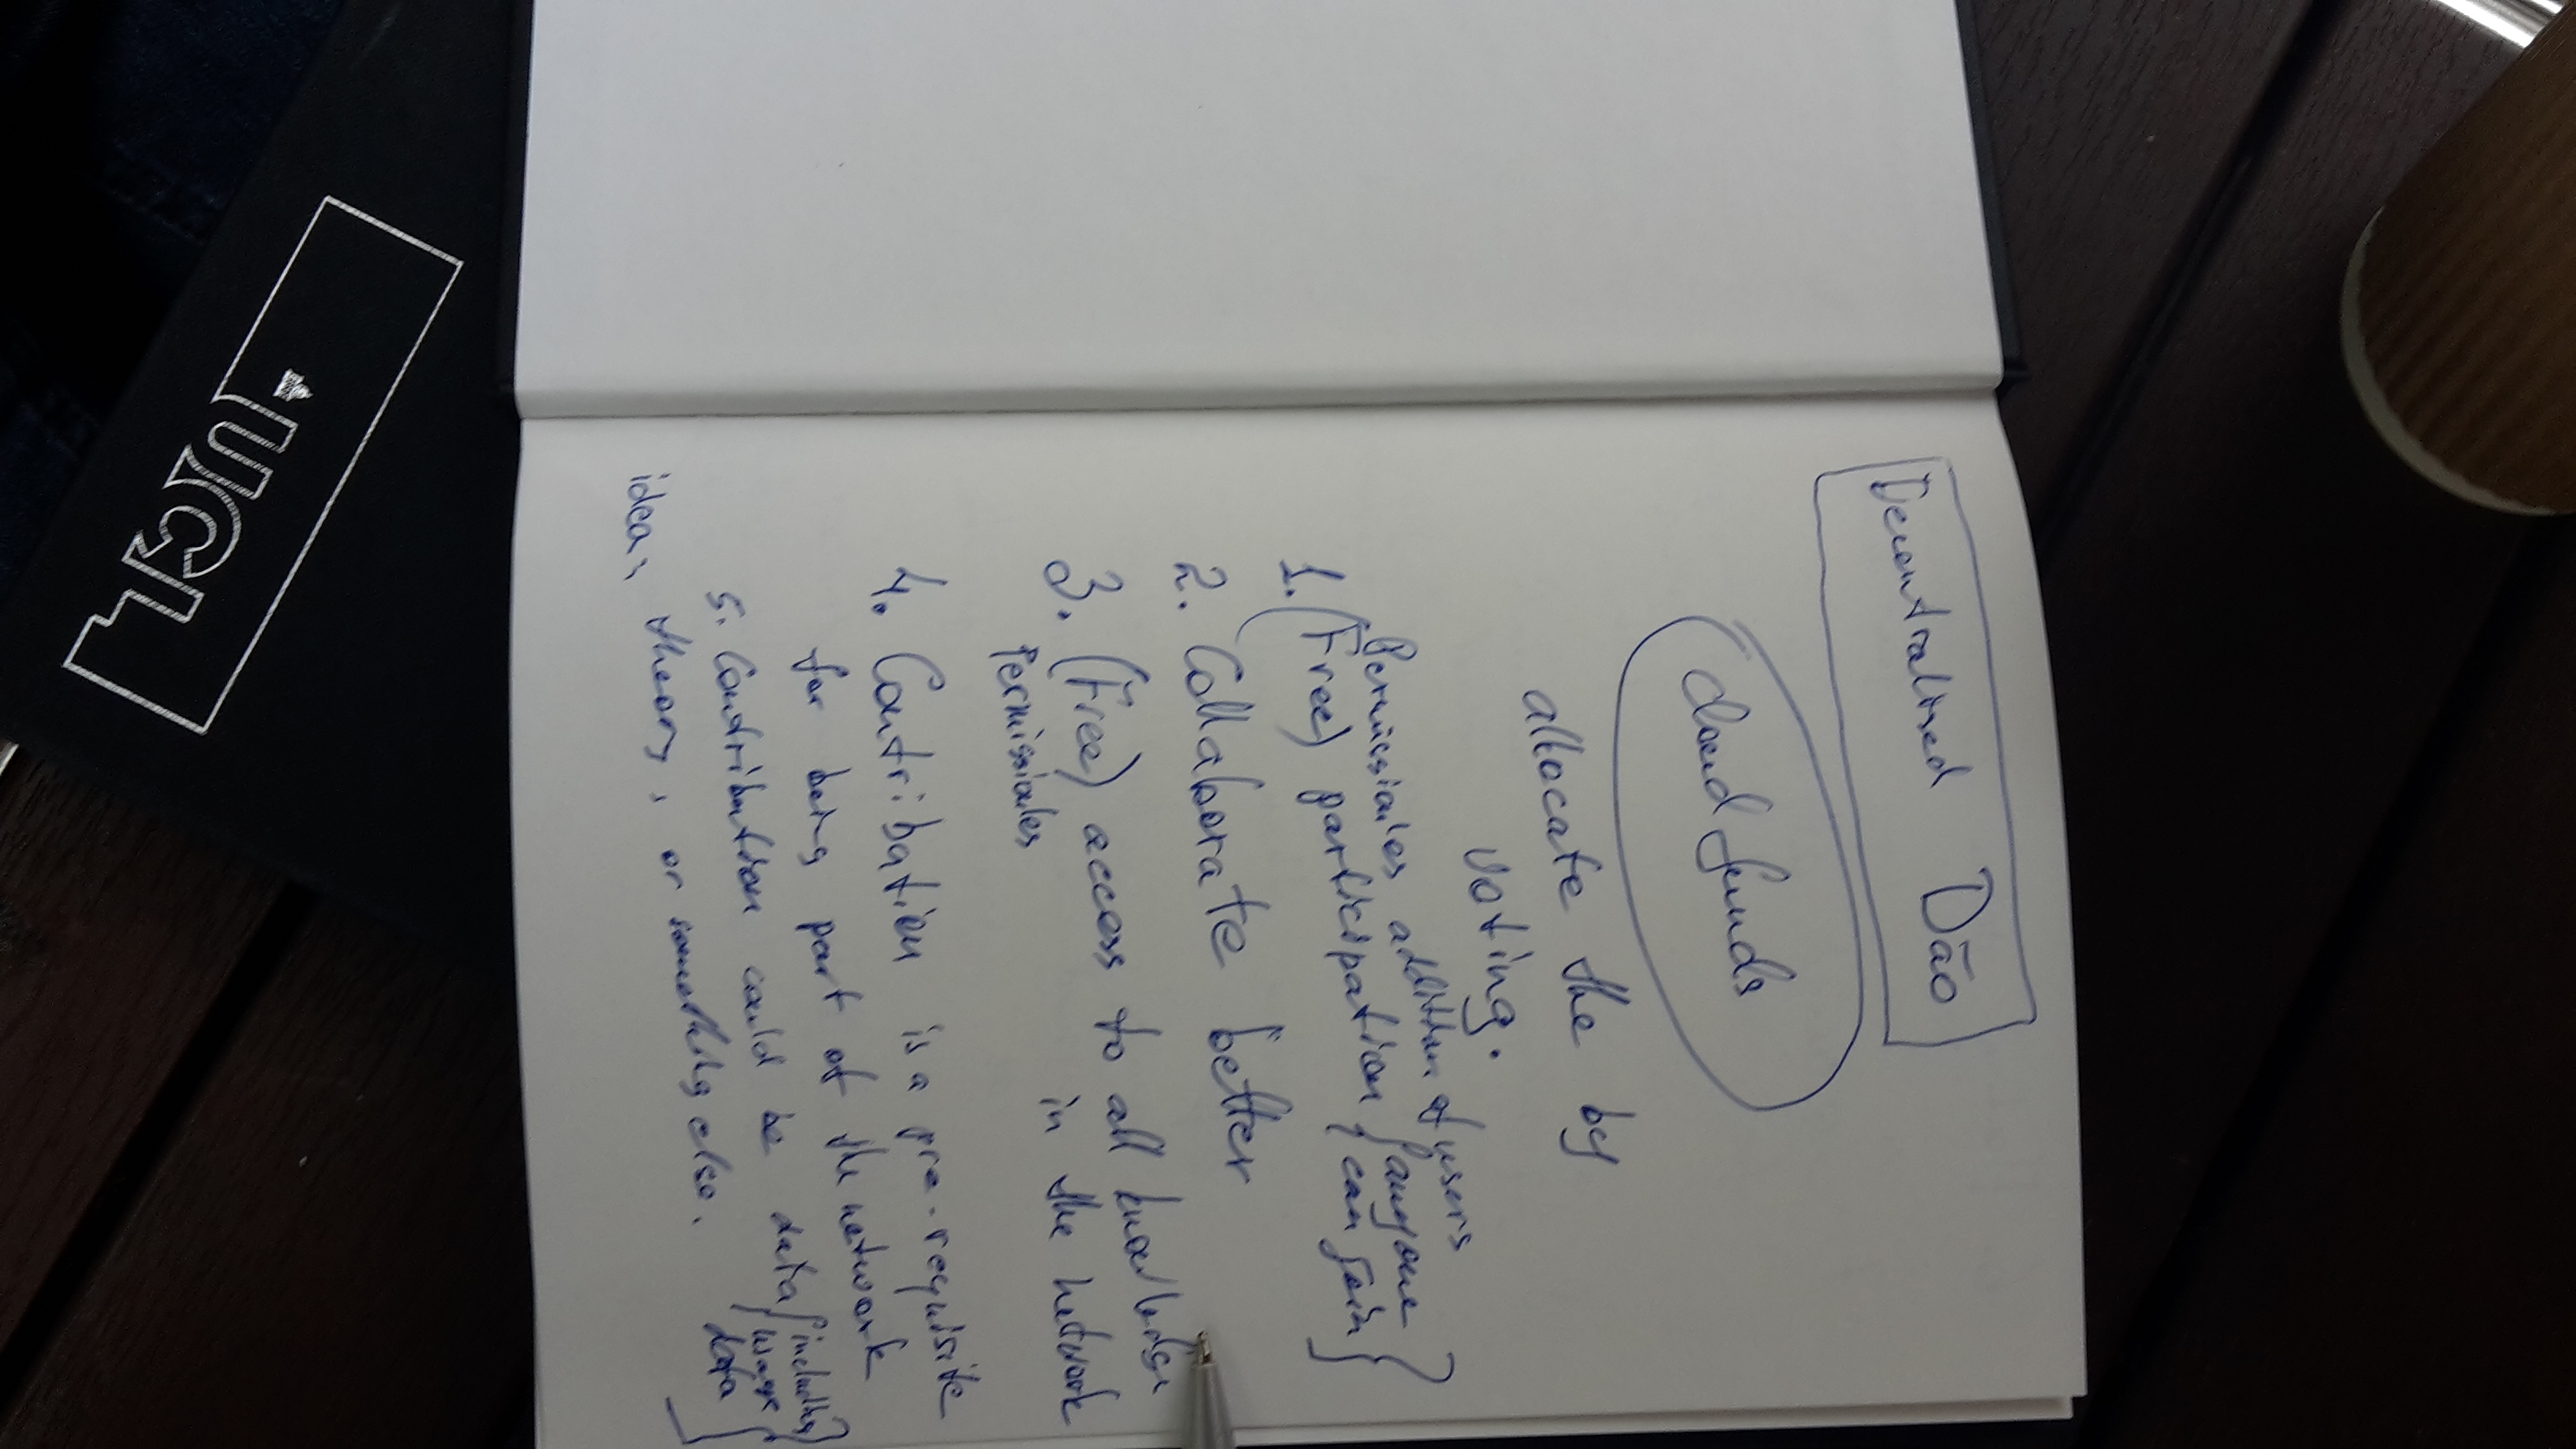 Decentralised Dāo
cloud funds
allocate the by
voting.
Permissionles addition of users
1. (Free) participation {anyone
can join}
2. Collaborate better
3. (Free) access to all knowledge
Permissionles in the network
4. Contribution is a pre-requisite
for being part of the network
5. Contribution could be data {including
usage
data}
idea, theory, or something else.
UCL